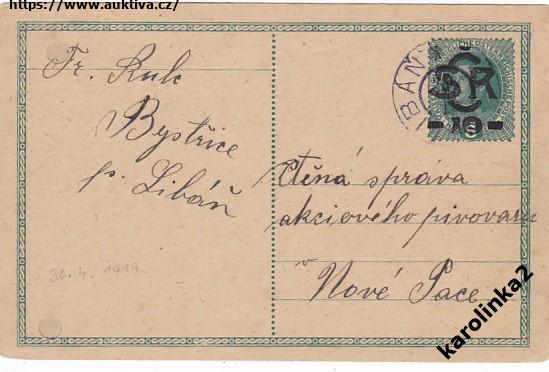 https://www.auktiva.cz/
Fr. Kulc
Bystřice
p. Libáň
30.4.1919
LIBÁŇ
ČSR
-10-
Ctěná správa
akciového pivovaru
v
Nové Pace
karolinka2